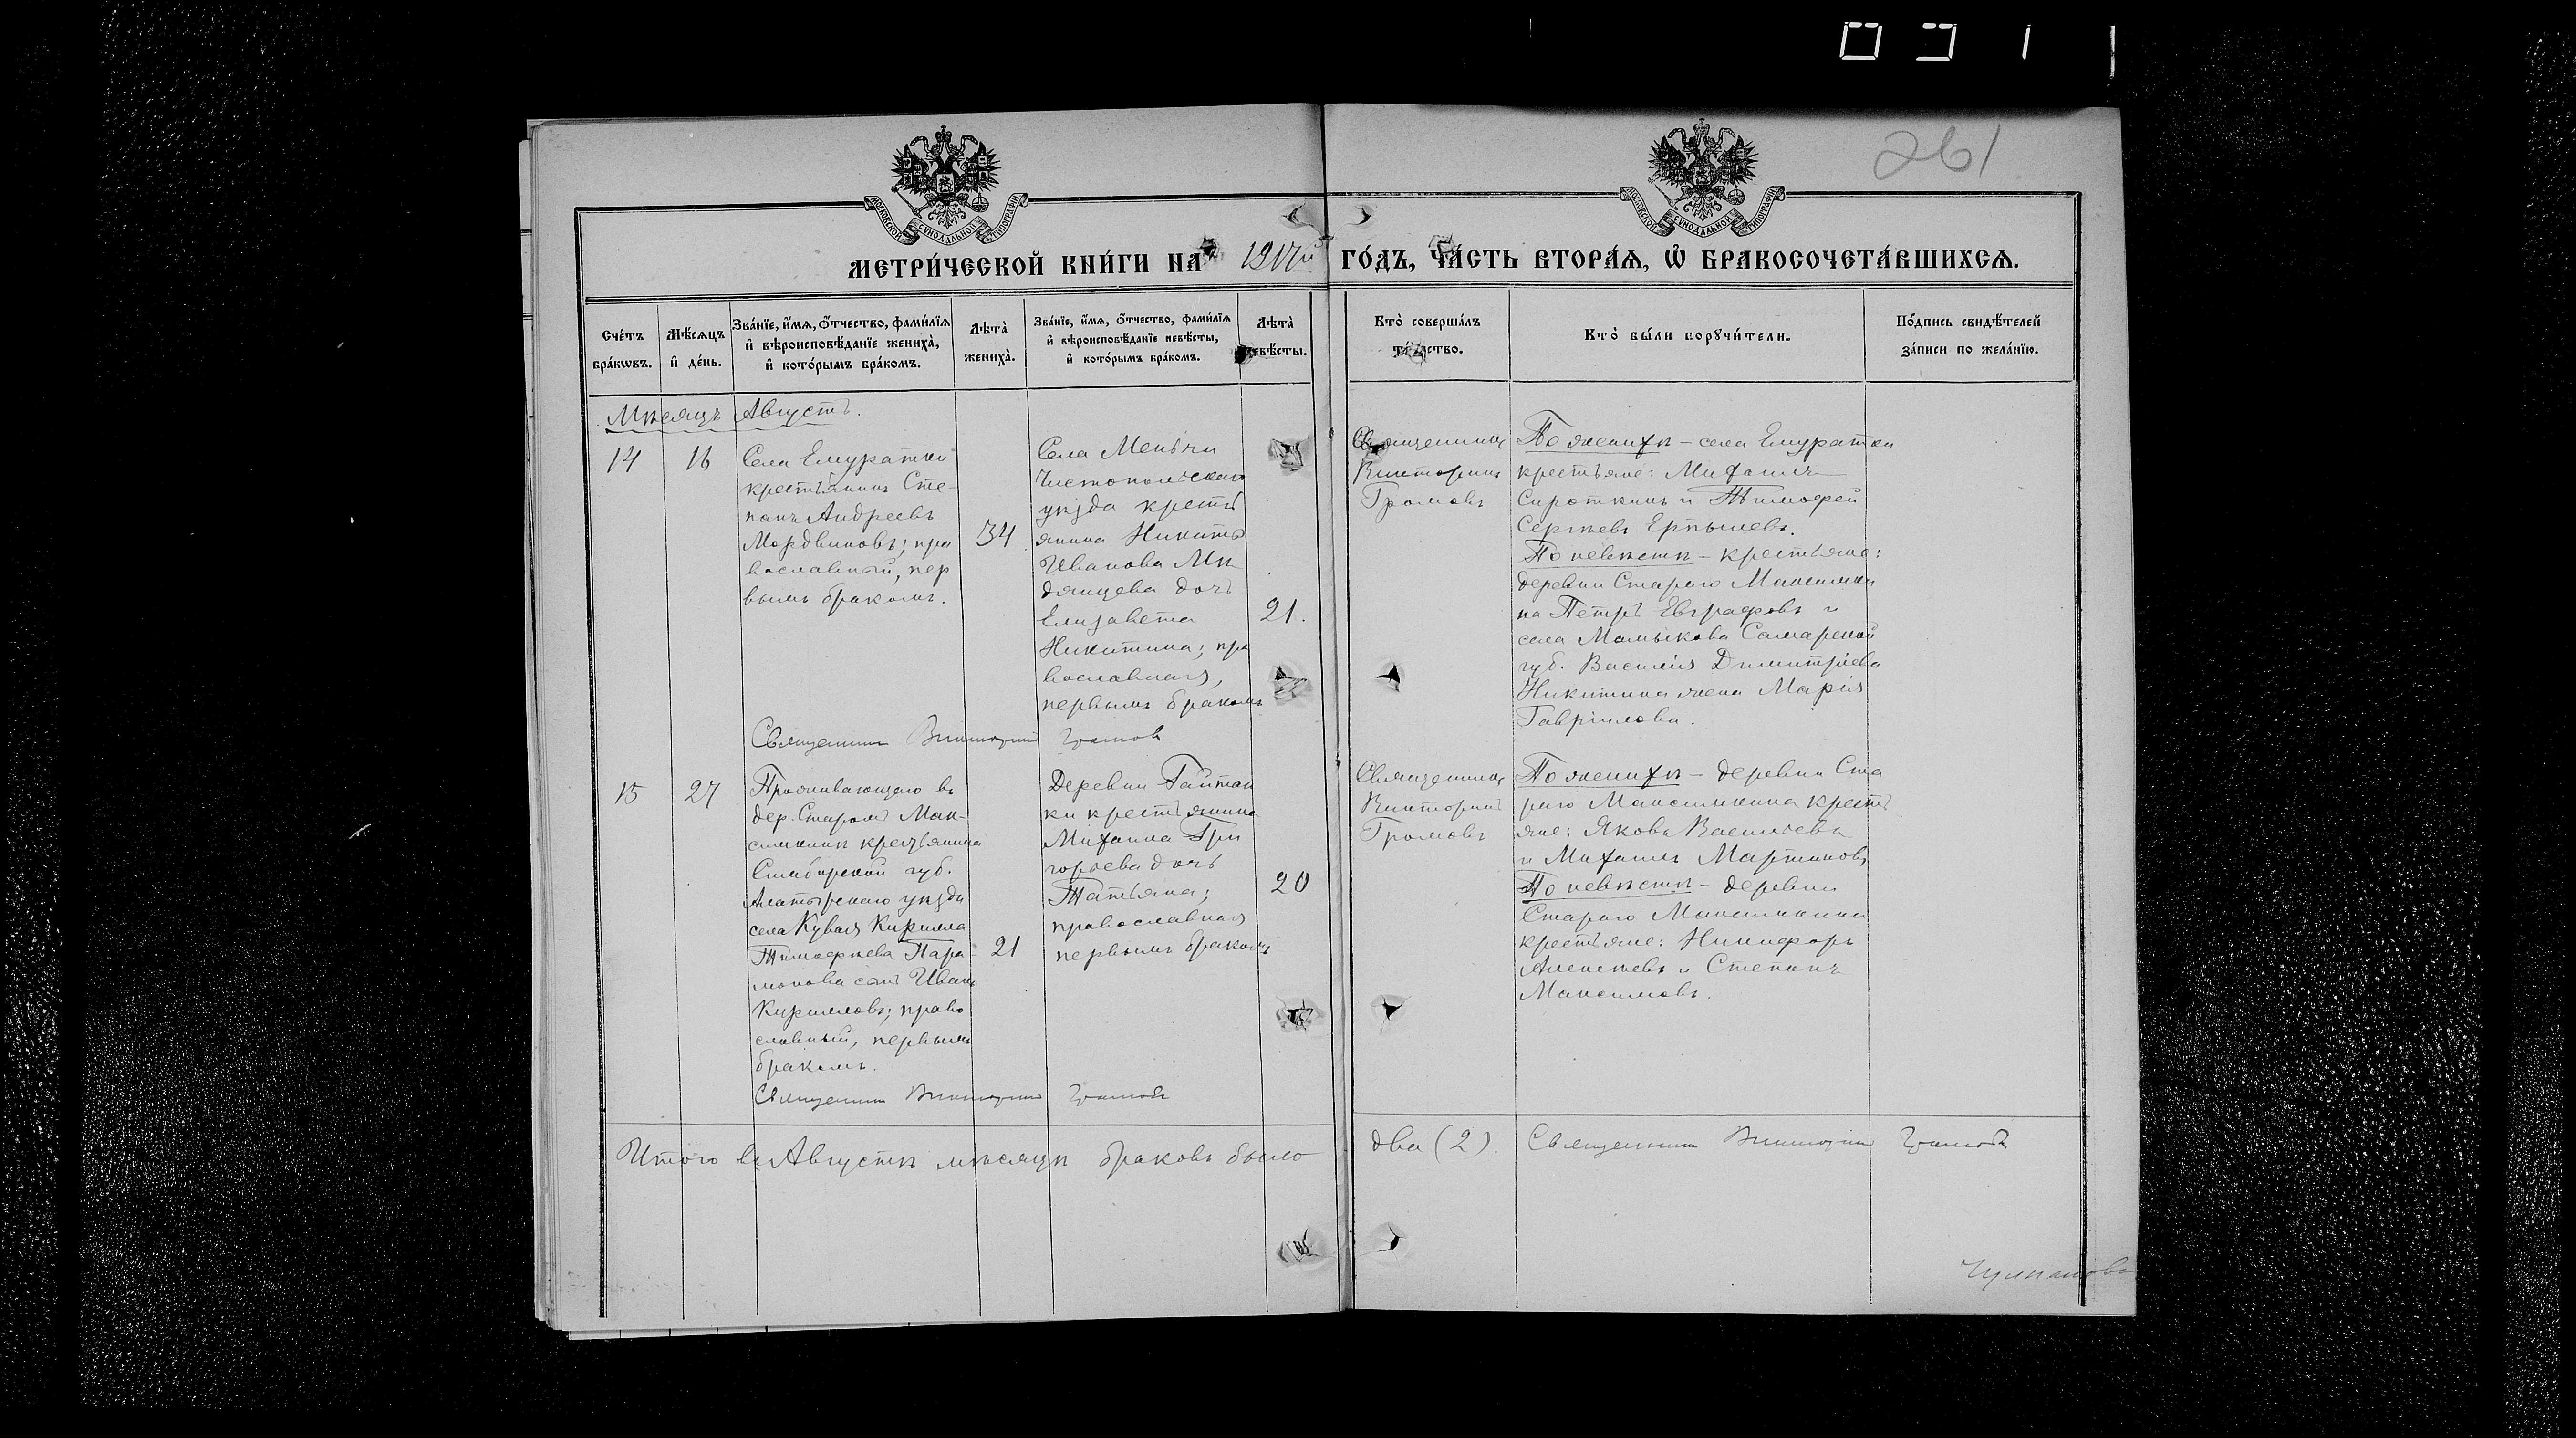 0311
261
МОСКОВСКОЙ СѴНОДАЛЬНОЙ ТИПОГРАФІИ
МОСКОВСКОЙ СѴНОДАЛЬНОЙ ТИПОГРАФІИ
МЕТРИ́ЧЕСКОЙ КНИ́ГИ НА 1917й ГО́ДЪ, ЧА́СТЬ ВТОРА́Ѧ, Ѡ҆ БРАКОСОЧЕТА́ВШИХСѦ.
Сче́тъ бра́кѡвъ.
Мѣ́сѧцъ и҆ де́нь.
Зва́нїе, и҆́мѧ, ѻ҆́тчество, фами́лїѧ и҆ вѣроисповѣ́данїе жениха̀, и҆ кото́рымъ бра́комъ.
Лѣта̀ жениха̀.
Зва́нїе, и҆́мѧ, ѻ҆́тчество, фами́лїѧ и҆ вѣроисповѣ́данїе невѣ́сты, и҆ кото́рымъ бра́комъ.
Лѣта̀ невѣ́сты.
Кто̀ соверша́лъ та́инство.
Кто̀ бы́ли порꙋчи́тели.
По́дпись свидѣ́телей за́писи по жела́нїю.
Мѣсяцъ Августъ.
14
16
Села Емуратки
крестьянинъ Сте-
панъ Андреевъ
Мордвиновъ; пра
вославный, пер
вымъ бракомъ.
34
Села Меньчи
Чистопольскаго
уѣзда кресть
янина Никиты
Иванова Ми
дянцева дочь
Елизавета
Никитина; пра
вославная,
первымъ бракомъ
21.
Священникъ
Викторинъ
Громовъ
По женихѣ – села Емуратки
крестьяне: Михаилъ
Сироткинъ и Тимофей
Сергѣевъ Ерпылевъ.
По невѣстѣ – крестьяне:
деревни Стараго Максимки
на Петръ Евграфовъ и
села Мамыкова Самарской
губ. Василія Димитріева
Никитина жена Марія
Гавріилова.
Священникъ Викторинъ Громовъ
15
27
Проживающаго въ
дер. Старомъ Мак-
симкинѣ крестьянина
Симбирской губ.
Алатырскаго уѣзда
села Кувая Кирилла
Тимофѣева Пара-
монова сынъ Иванъ
Кирилловъ; право
славный, первымъ
бракомъ.
21
Деревни Гайтан
ки крестьянина
Михаила Гри
горьева дочь
Татьяна;
православная
первымъ бракомъ
20
Священникъ
Викторинъ
Громовъ
По женихѣ – деревни Ста
раго Максимкина кресть
яне: Яковъ Васильевъ
и Михаилъ Мартиновъ
По невѣстѣ – деревни
Стараго Максимкина
крестьяне: Никифоръ
Алексѣевъ и Степанъ
Максимовъ.
Священникъ Викторинъ Громовъ
Итого въ Августѣ мѣсяцѣ браковъ было два (2). Священникъ Викторинъ Громовъ